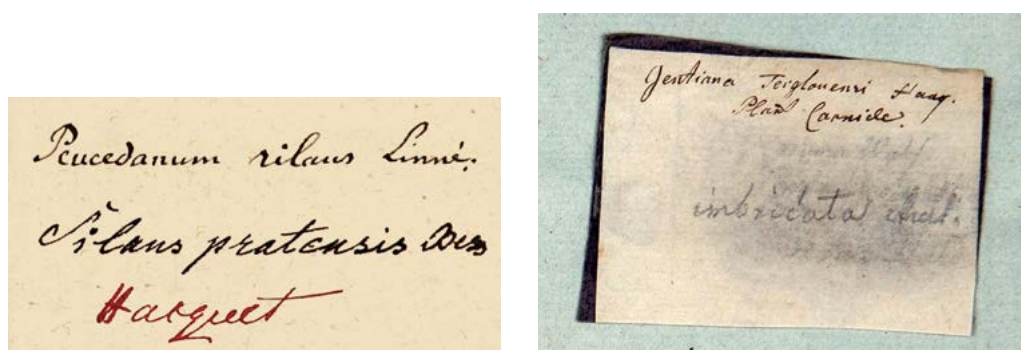 Peucedanum silaus Linné.
Silaus pratensis Bess
Hacquet
Gentiana Terglouensi Hacq.
Plant Carniole.
imbricata